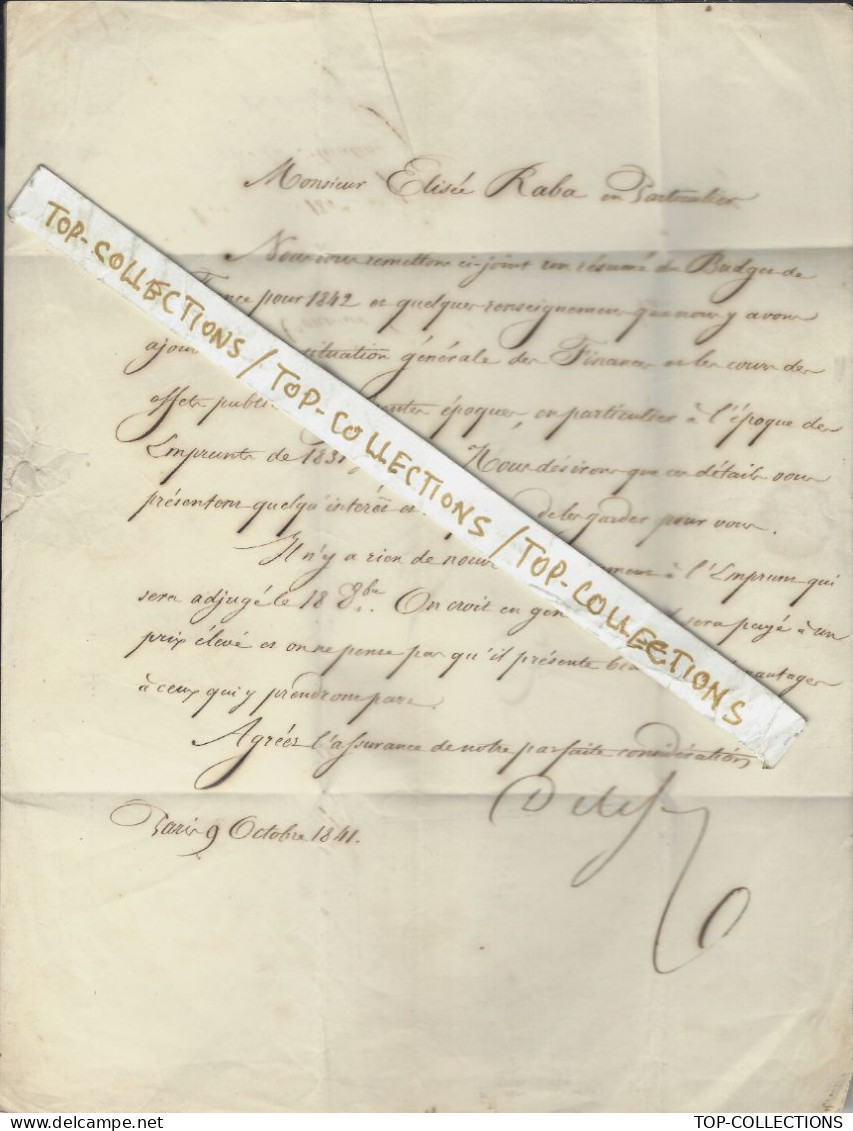 Monsieur Elisée Raba en Particulier
Nous vous remettons ci-joint un résumé du Budget de
pour 1842 et quelques renseignements que nous y avons
situation générale des Finances et les cours des
effets époques, en particulier à l'époque des
Emprunts de Nous désirons que ces détails vous
présentent quelqu'intérêt et de les garder pour vous.
Il n'y a rien de à l'Emprunt qui
sera adjugé le 18 8bre. On croit en sera payé à un
prix élevé et on ne pense pas qu'il présente
à ceux qui y prendront part.
Agréez l'assurance de notre parfaite considération
Paris 9 Octobre 1841.
TOP-COLLECTIONS / TOP-COLLECTIONS / TOP-COLLECTIONS
TOP-COLLECTIONS